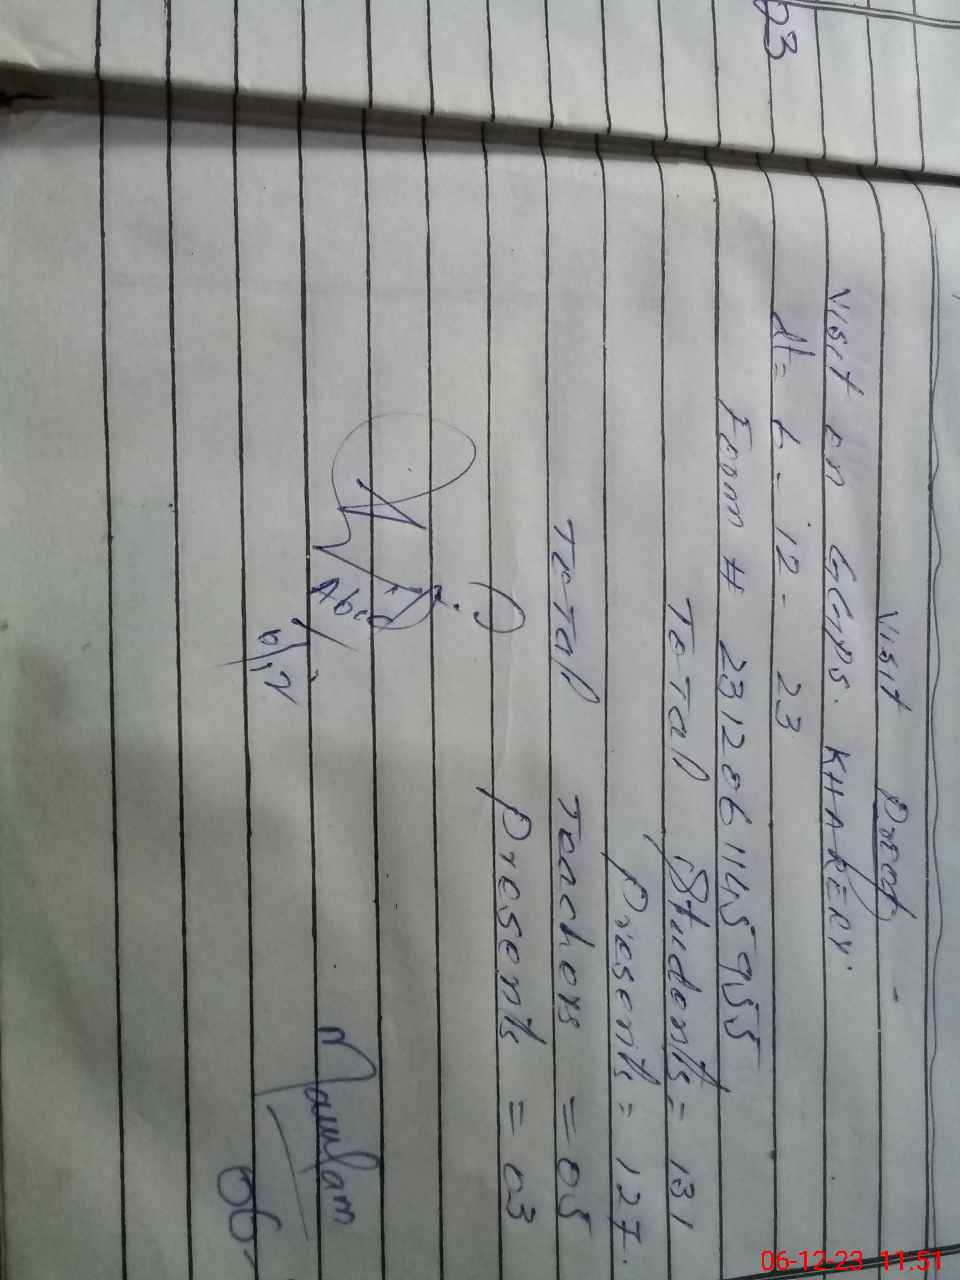 Visit Proof -
Visit on GGPS. KHARERY.
dt = 6 - 12 - 23
Form # 2312061145955
Total Students = 131
Presents = 127.
Total Teachers = 05
Presents = 03
6/12
06
23
06-12-23 11:51